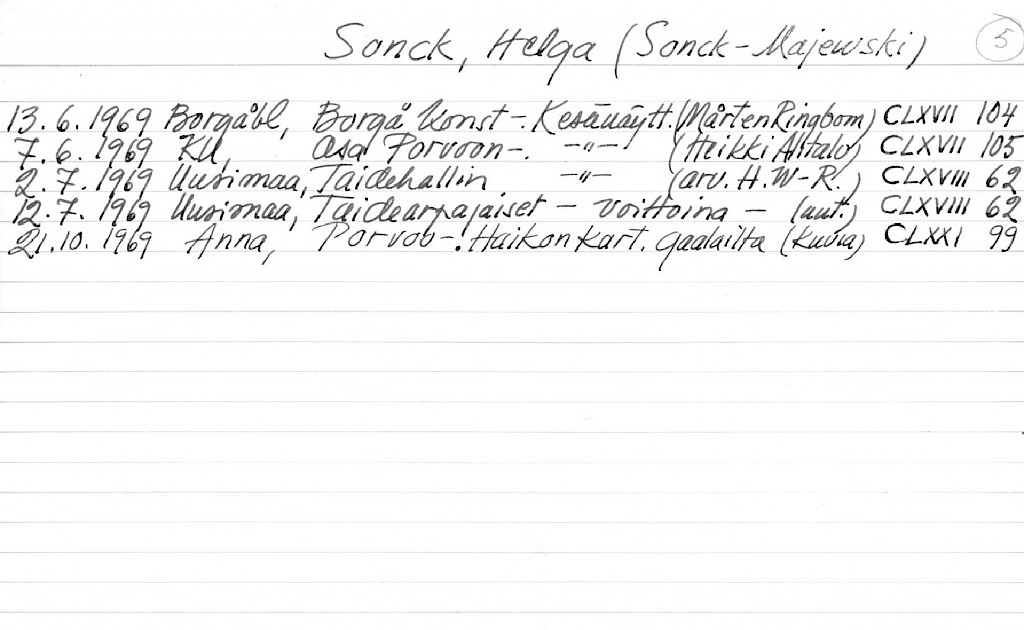 Sonck, Helga (Sonck-Majewski) 5
13.6.1969 Borgåbl, Borgå Konst-. Kesänäytt. (Mårten Ringbom) CLXVII 104
7.6.1969 KU, Porvoon-. -"- (Heikki Ahtalo) CLXVII 105
2.7.1969 Uusimaa, Taidehallin -"- (arv. H.W-R.) CLXVIII 62
12.7.1969 Uusimaa, Taidearpajaiset - voittoina - (uut.) CLXVIII 62
21.10.1969 Anna, Porvoo-. Haikon kart. gaalailta (kuvia) CLXXI 99